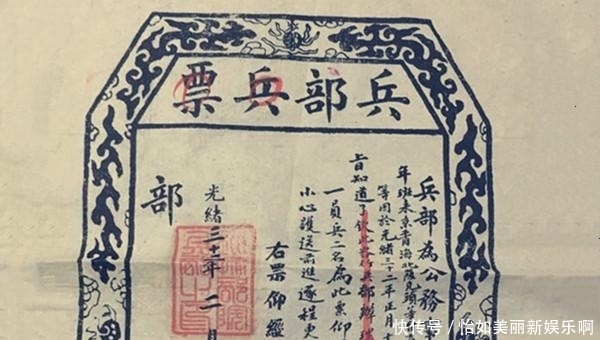 兵部兵票
兵部為公務
年班來京青海北
等因於光緒三十二年正月十
旨知道了欽此咨行兵部辦理
一員兵二名為此票仰
小心護送前進逐程更
右票仰經
光緒三十二年二月
部
快传号 / 怡如美丽新娱乐啊